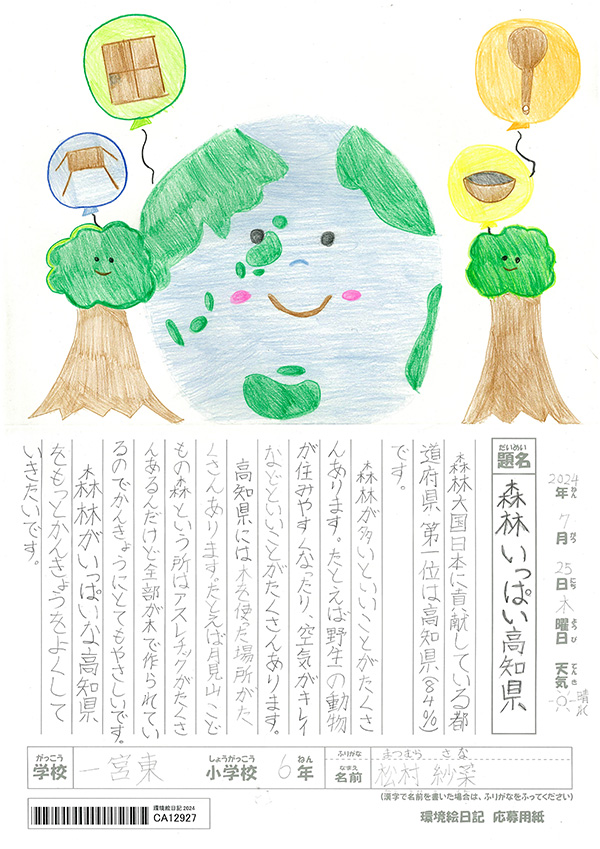 2024年 7月 25日 木曜日 天気 晴れ
ねん がつ にち ようび てんき
だいめい
題名 森林いっぱい高知県
森林大国日本に貢献している都
道府県 第一位は高知県(84%)
です。
森林が多いといいことがたくさ
んあります。たとえば野生の動物
が住みやすくなったり、空気がキレイ
などといいことがたくさんあります。
高知県には木を使った場所がた
くさんあります。たとえば月見山こど
もの森という所はアスレチックがたくさ
んあるんだけど全部が木で作られてい
るのでかんきょうにとてもやさしいです。
森林がいっぱいな高知県
をもっとかんきょうをよくして
いきたいです。
がっこう しょうがっこう ねん
学校 一宮東 小学校 6年
ふりがな まつむら さな
なまえ
名前 松村 紗菜
(漢字で名前を書いた場合は、ふりがなをふってください)
環境絵日記2024
CA12927
環境絵日記 応募用紙